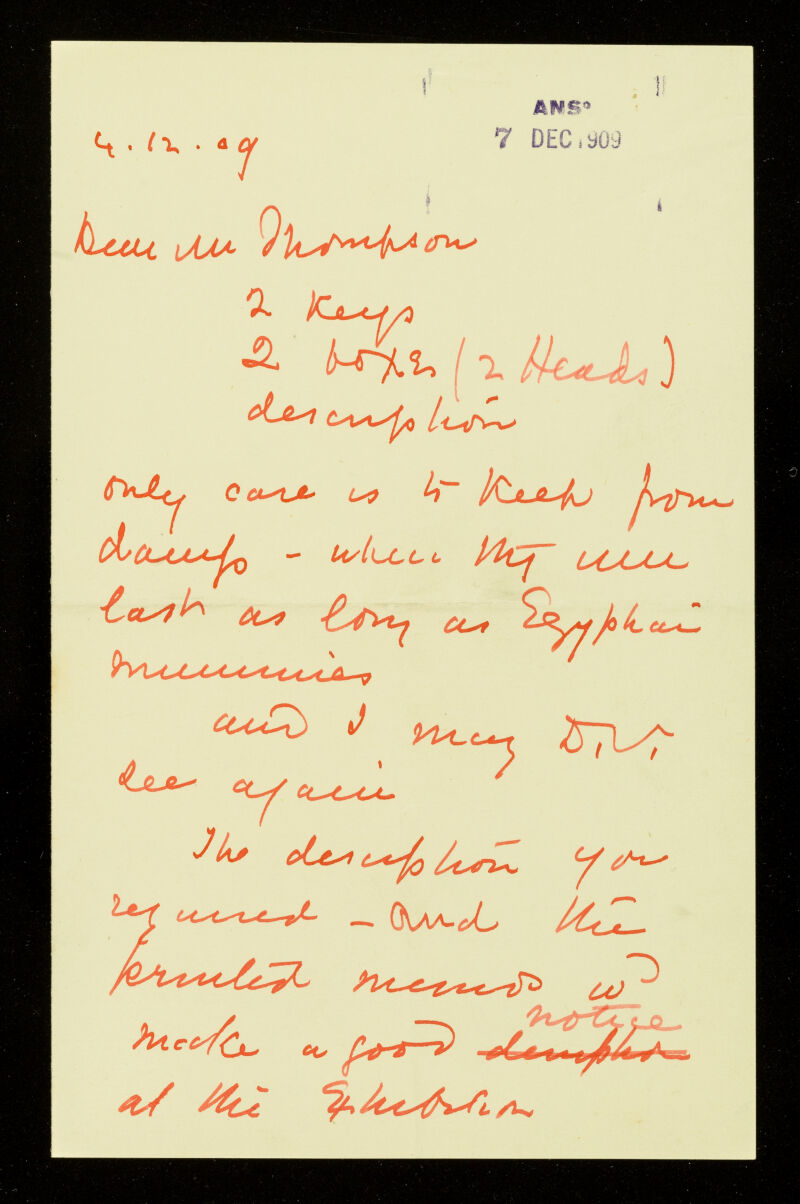 ANSᵈ
7 DEC 1909
4.12.09
Dear Mr Thompson
2 Keys
2 boxes (2 Heads)
description
only care is to Keep from
damp - when they will
last as long as Egyptian
mummies
and I may D.V.
see again
The description you
required - and the
printed memo wᵈ
make a good notice
at the Exhibition